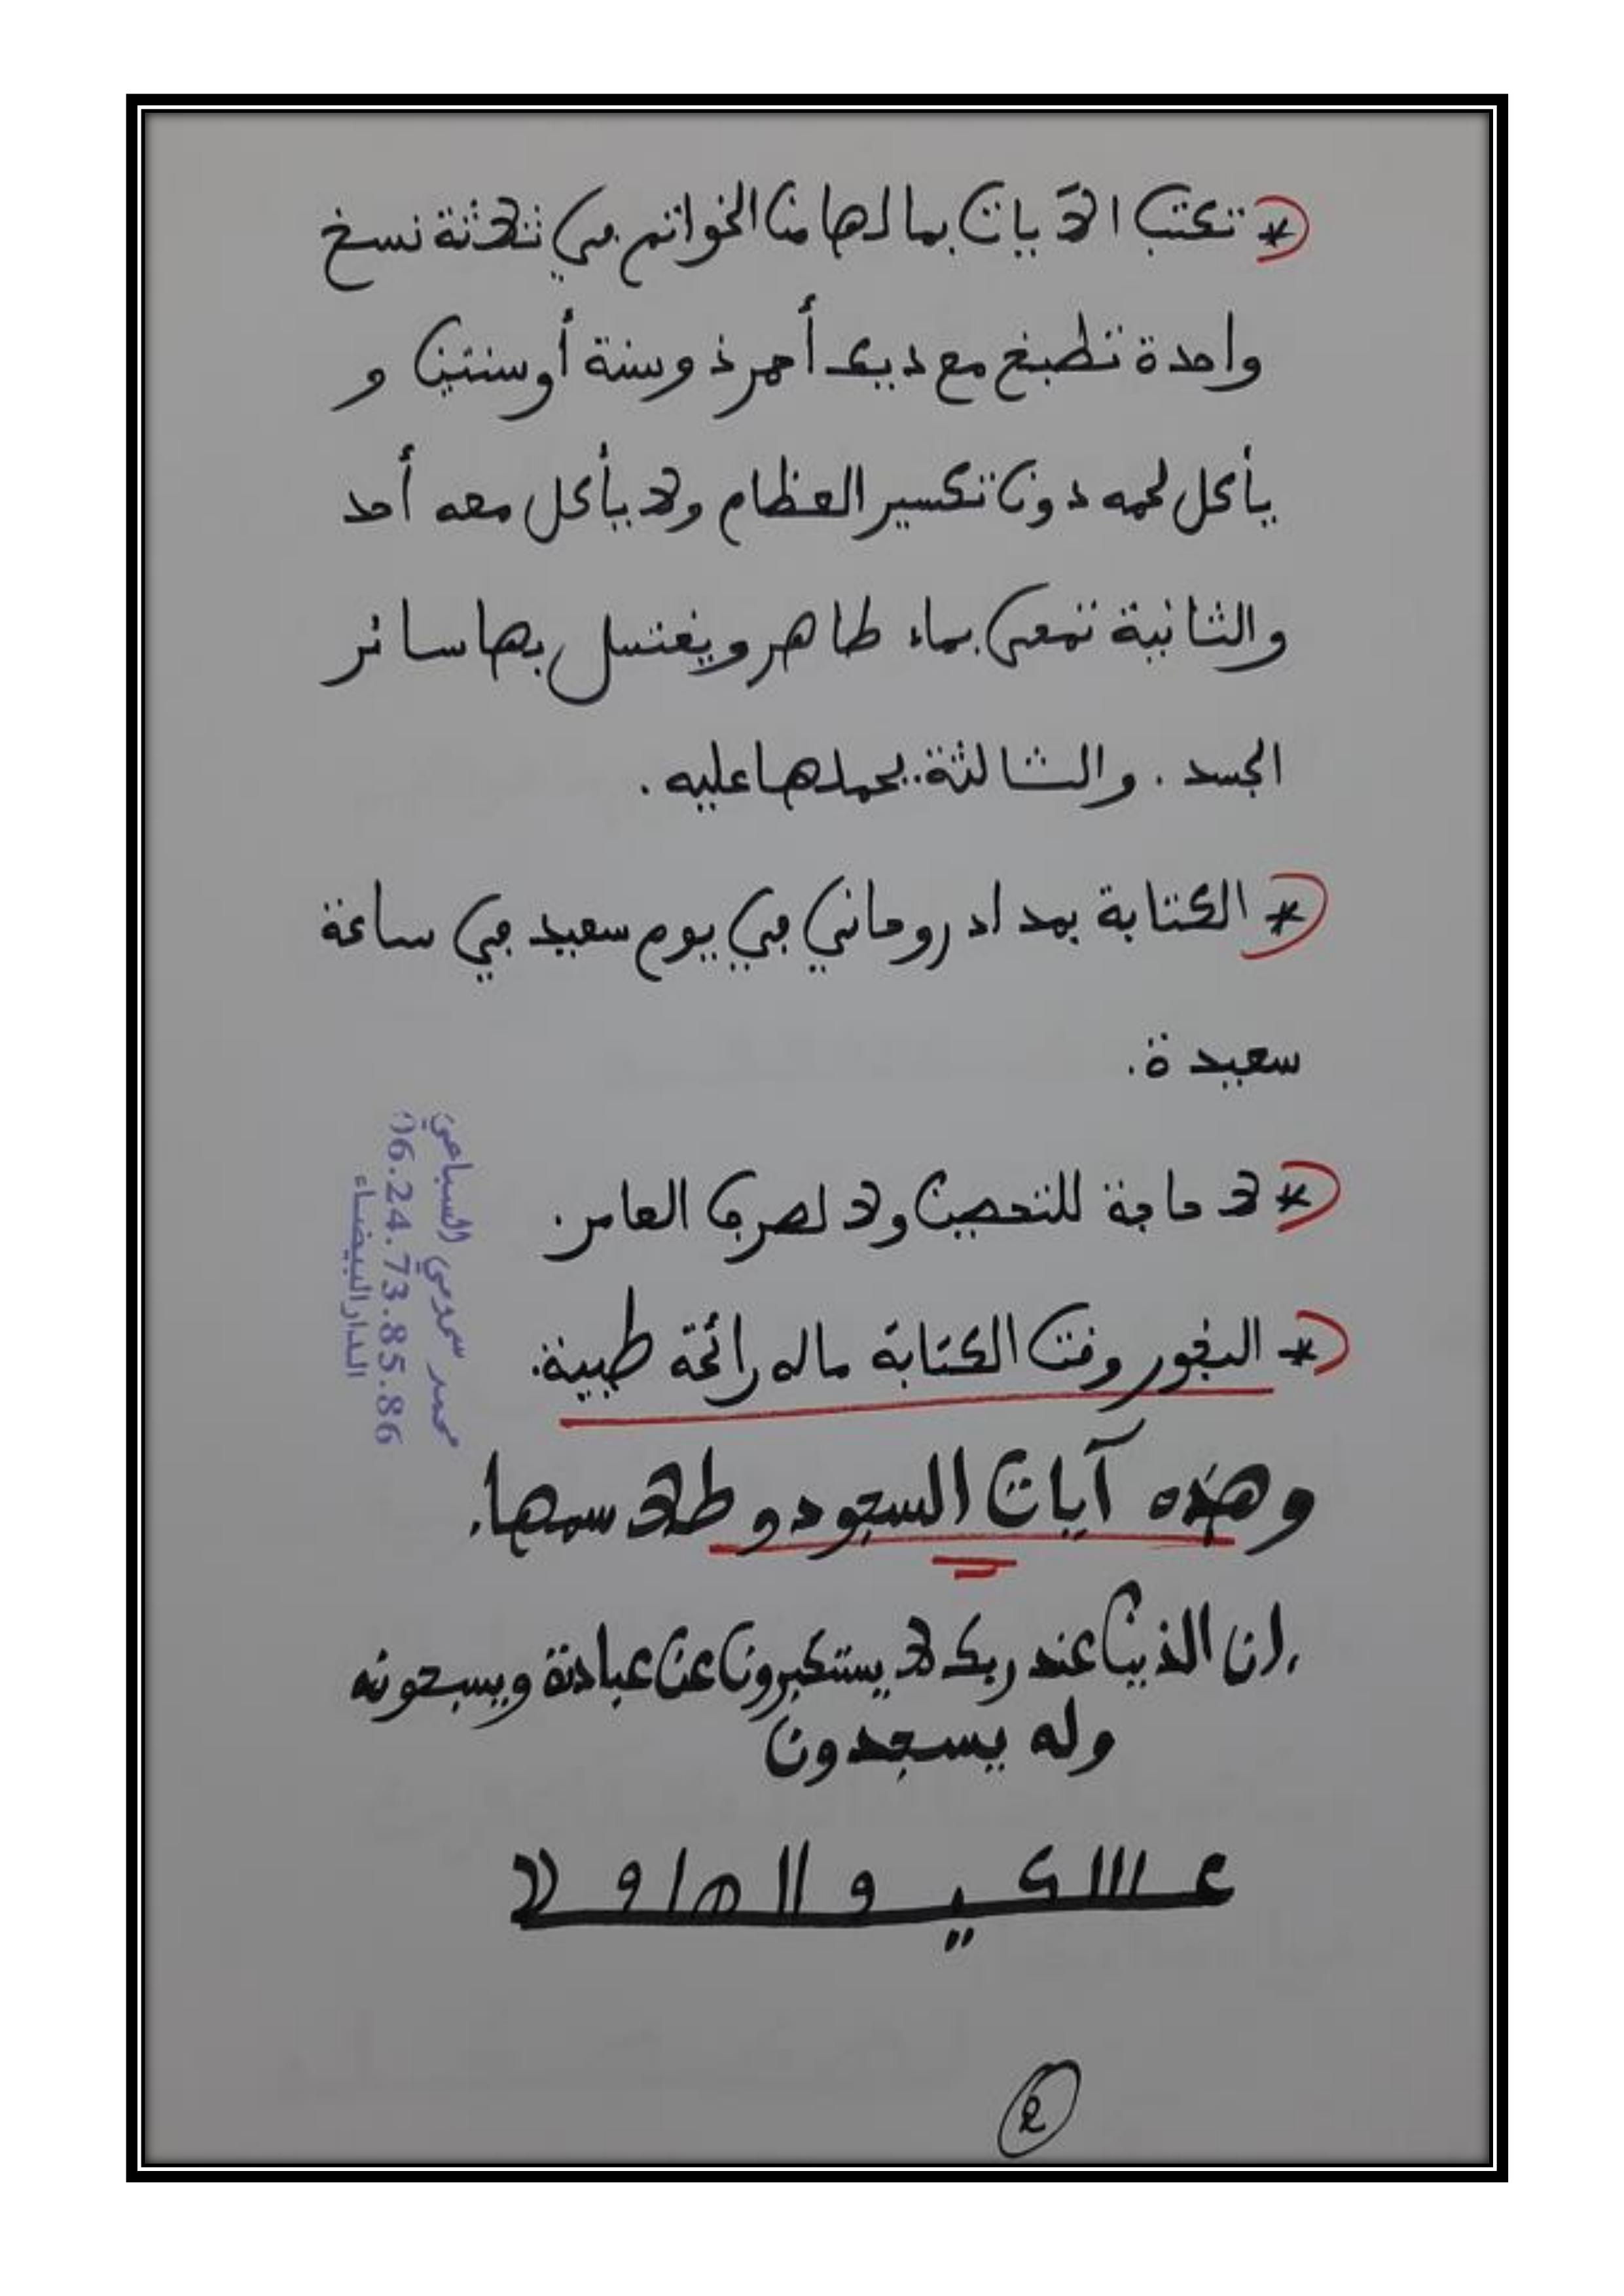 * تكتب الآيات بما لها من الخواتم في ثلاثة نسخ
واحدة تطبخ مع ديك أحمر ذو سنة أو سنتين و
يأكل لحمه دون تكسير العظام ولا يأكل معه أحد
والثانية تمحى بماء طاهر ويغتسل بها سائر
الجسد . والثالثة يحملها عليه .
* الكتابة بمداد روحاني في يوم سعيد في ساعة
سعيدة .
* لا حاجة للتحصين ولا لصرف العامر .
* البخور وقت الكتابة ماله رائحة طيبة .
وهذه آيات السجود و طلاسمها .
إن الذين عند ربك لا يستكبرون عن عبادته ويسبحونه
وله يسجدون
2
محمد سمومي السباعي
06.24.73.85.86
الدار البيضاء